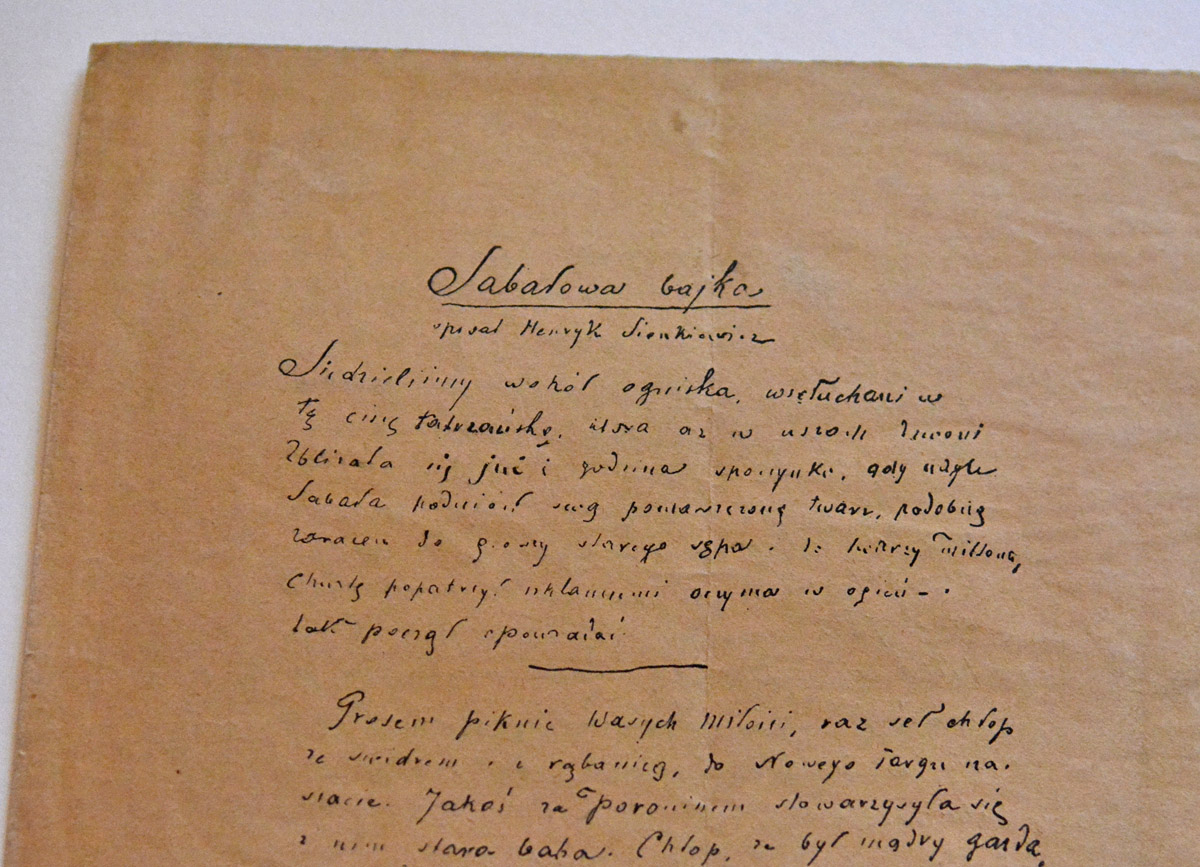 Sabałowa bajka
spisał Henryk Sienkiewicz
Siedzieliśmy wokół ogniska, wsłuchani w
tę ciszę tatrzańską, która aż w uszach dzwoni
Zbliżała się już i godzina spoczynku, gdy nagle
Sabała podniósł swą pomarszczoną twarz, podobną
zarazem do głowy starego sępa i do twarzy Miltona,
Chwilę popatrzył szklannemi oczyma w ogień –
tak począł opowiadać
Prosem piknie Wasych Miłości, raz seł chłop
ze świdrem i z rąbanicą, do Nowego Targu na
stacie. Jakoś za Poroninem stowarzysyła się
z nim stara baba. Chłop, ze był mądry garda